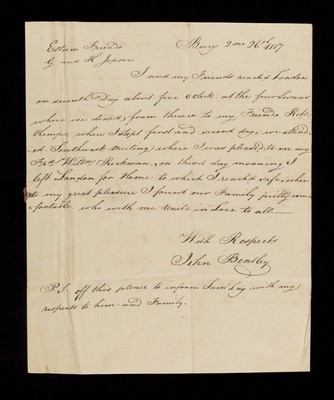 Esteem Friends Bury 2mo 26th 1817
G and H Jepson
I and my Friends reachd London
on seventh Day about five oClock at the four Swans
where we dined, from thence to my Friends Robt
Hemps, where I slept first and second day, we attend
ed Southwark Meeting where I was pleasd to see my
Frd Willm Rickman, on third day morning I
left London for Home to which I reachd safe, when
to my great pleasure I found our Family pretty com
fortable who with me Unite in Love to all
With Respects
John Bensley
P.S. off this please to inform Saml Day with my
respect to him and Family.